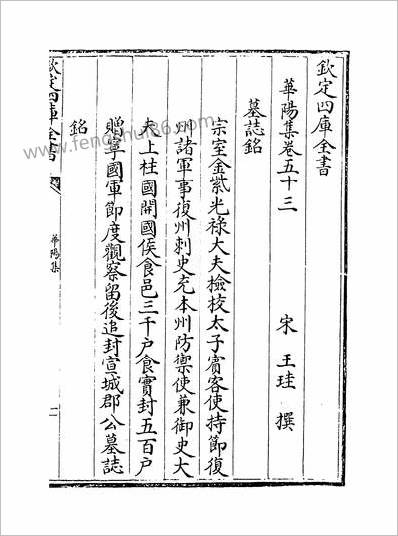 欽定四庫全書
華陽集卷五十三
宋 王珪 撰
墓誌銘
宗室金紫光祿大夫撿校太子賓客使持節復
州諸軍事復州刺史充本州防禦使兼御史大
夫上柱國開國侯食邑三千户食實封五百户
贈寧國軍節度觀察留後追封宣城郡公墓誌
銘
欽定四庫全書
華陽集
一